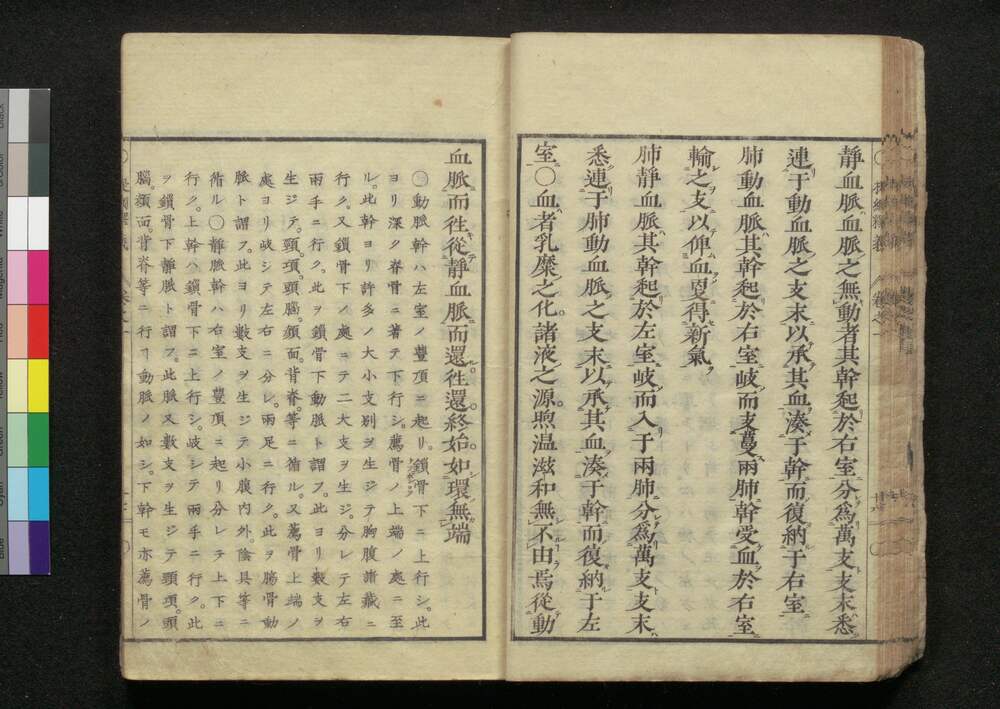 靜血脈血脈之無動者其幹起於右室分爲萬支支末悉
連于動血脈之支末以承其血湊于幹而復納于右室
肺動血脈其幹起於右室岐而支蔓兩肺幹受血於右室
輸之支以俾血更得新氣
肺靜血脈其幹起於左室岐而入于兩肺分爲萬支支末
悉連于肺動血脈之支末以承其血湊于幹而復納于左
室○血者乳糜之化諸液之源煦温滋和無不由焉從動
血脈而往從靜血脈而還往還終始如環無端
○動脈幹ハ左室ノ豐頂ニ起リ。鎖骨下ニ上行シ。此
ヨリ深ク脊骨ニ著テ下行シ。薦骨ノ上端ノ處ニ至
ル。此幹ヨリ許多ノ大小支別ヲ生ジテ胸腹諸藏ニ
行ク。又鎖骨下ノ處ニテ二大支ヲ生ジ。分レテ左右
兩手ニ行ク。此ヲ鎖骨下動脈ト謂フ。此ヨリ數支ヲ
生ジテ。頸。項。頭腦。顏面。背脊。等ニ循ル。又薦骨上端ノ
處ヨリ岐シテ左右ニ分レ。兩足ニ行ク。此ヲ腸骨動
脈ト謂フ。此ヨリ數支ヲ生ジテ小腹内外陰具等ニ
循ル○靜脈幹ハ右室ノ豐頂ニ起リ分レテ上下ニ
行ク。上幹ハ鎖骨下ニ上行シ。岐シテ兩手ニ行ク。此
ヲ鎖骨下靜脈ト謂フ。此脈又數支ヲ生ジテ頸項。頭
腦。顏面。背脊等ニ行ヿ動脈ノ如シ。下幹モ亦薦骨ノ